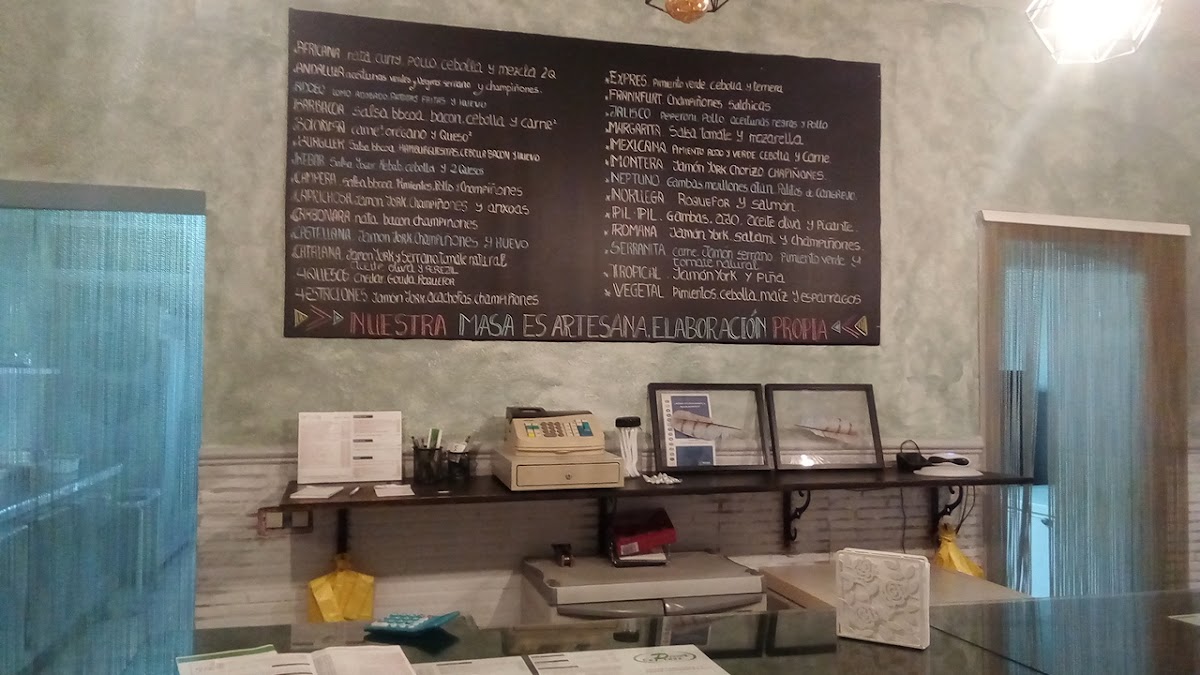 AFRICANA nata curry pollo cebolla y mezcla 2Q
ANDALUZA aceitunas verdes y negras serrano y champiñones.
RODEO lomo adobado, patatas fritas y huevo
BARBACOA Salsa bbcoa, bacon, cebolla y carne
BOLOÑESA carne, oregano y Queso
BURGUER Salsa bbcoa, HAMBURGUESITAS, CEBOLLA BACON Y HUEVO
KEBAB Salsa Yogur Kebab, cebolla y 2 Quesos
CAMPERA Salsa bbcoa, Pimientos, Pollo y Champiñones
CAPRICHOSA Jamon York, Champiñones y anxoas
CARBONARA nata bacon champiñones
CASTELLANA Jamon York, Champiñones y HUEVO
CATALANA Jamon York y Serrano, tomate natural
aceite oliva y PEREJIL
4QUESOS Chedar, Gouda, Roquefor
4ESTACIONES Jamón York, alcachofas, champiñones
EXPRES Pimiento verde cebolla y ternera
FRANKFURT Champiñones Salchicas
JALISCO Peperoni, Pollo aceitunas negras y Pollo
MARGARITA Salsa tomate y mozarella
MEXICANA Pimiento rojo y verde cebolla y Carne
MONTERA Jamón York Chorizo CHAPIÑONES
NEPTUNO Gambas mejillones atún, Palitos de Cangrejo
NORUEGA Roquefor y salmón
PIL-PIL. Gambas, ajo, aceite oliva y Picante.
ROMANA Jamón York, salami y champiñones.
SERRANITA carne Jamon serrano Pimiento verde y
tomate natural
TROPICAL Jamón York y Piña
VEGETAL Pimientos, cebolla, maíz y esparragos
NUESTRA MASA ES ARTESANA, ELABORACIÓN PROPIA